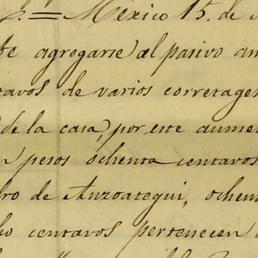 México 15. de
te agregarse al pasivo an
tavos de varios corretage
de la casa, por este aume
n pesos ochenta centavos
ro de Anzoategui, ochen
ho centavos pertenecen